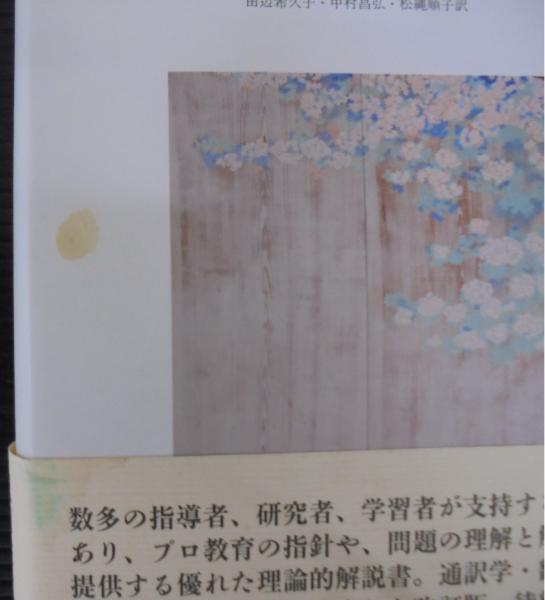 田辺希久子・中村昌弘・松縄順子訳
数多の指導者、研究者、学習者が支持す
あり、プロ教育の指針や、問題の理解と
提供する優れた理論的解説書。通訳学・